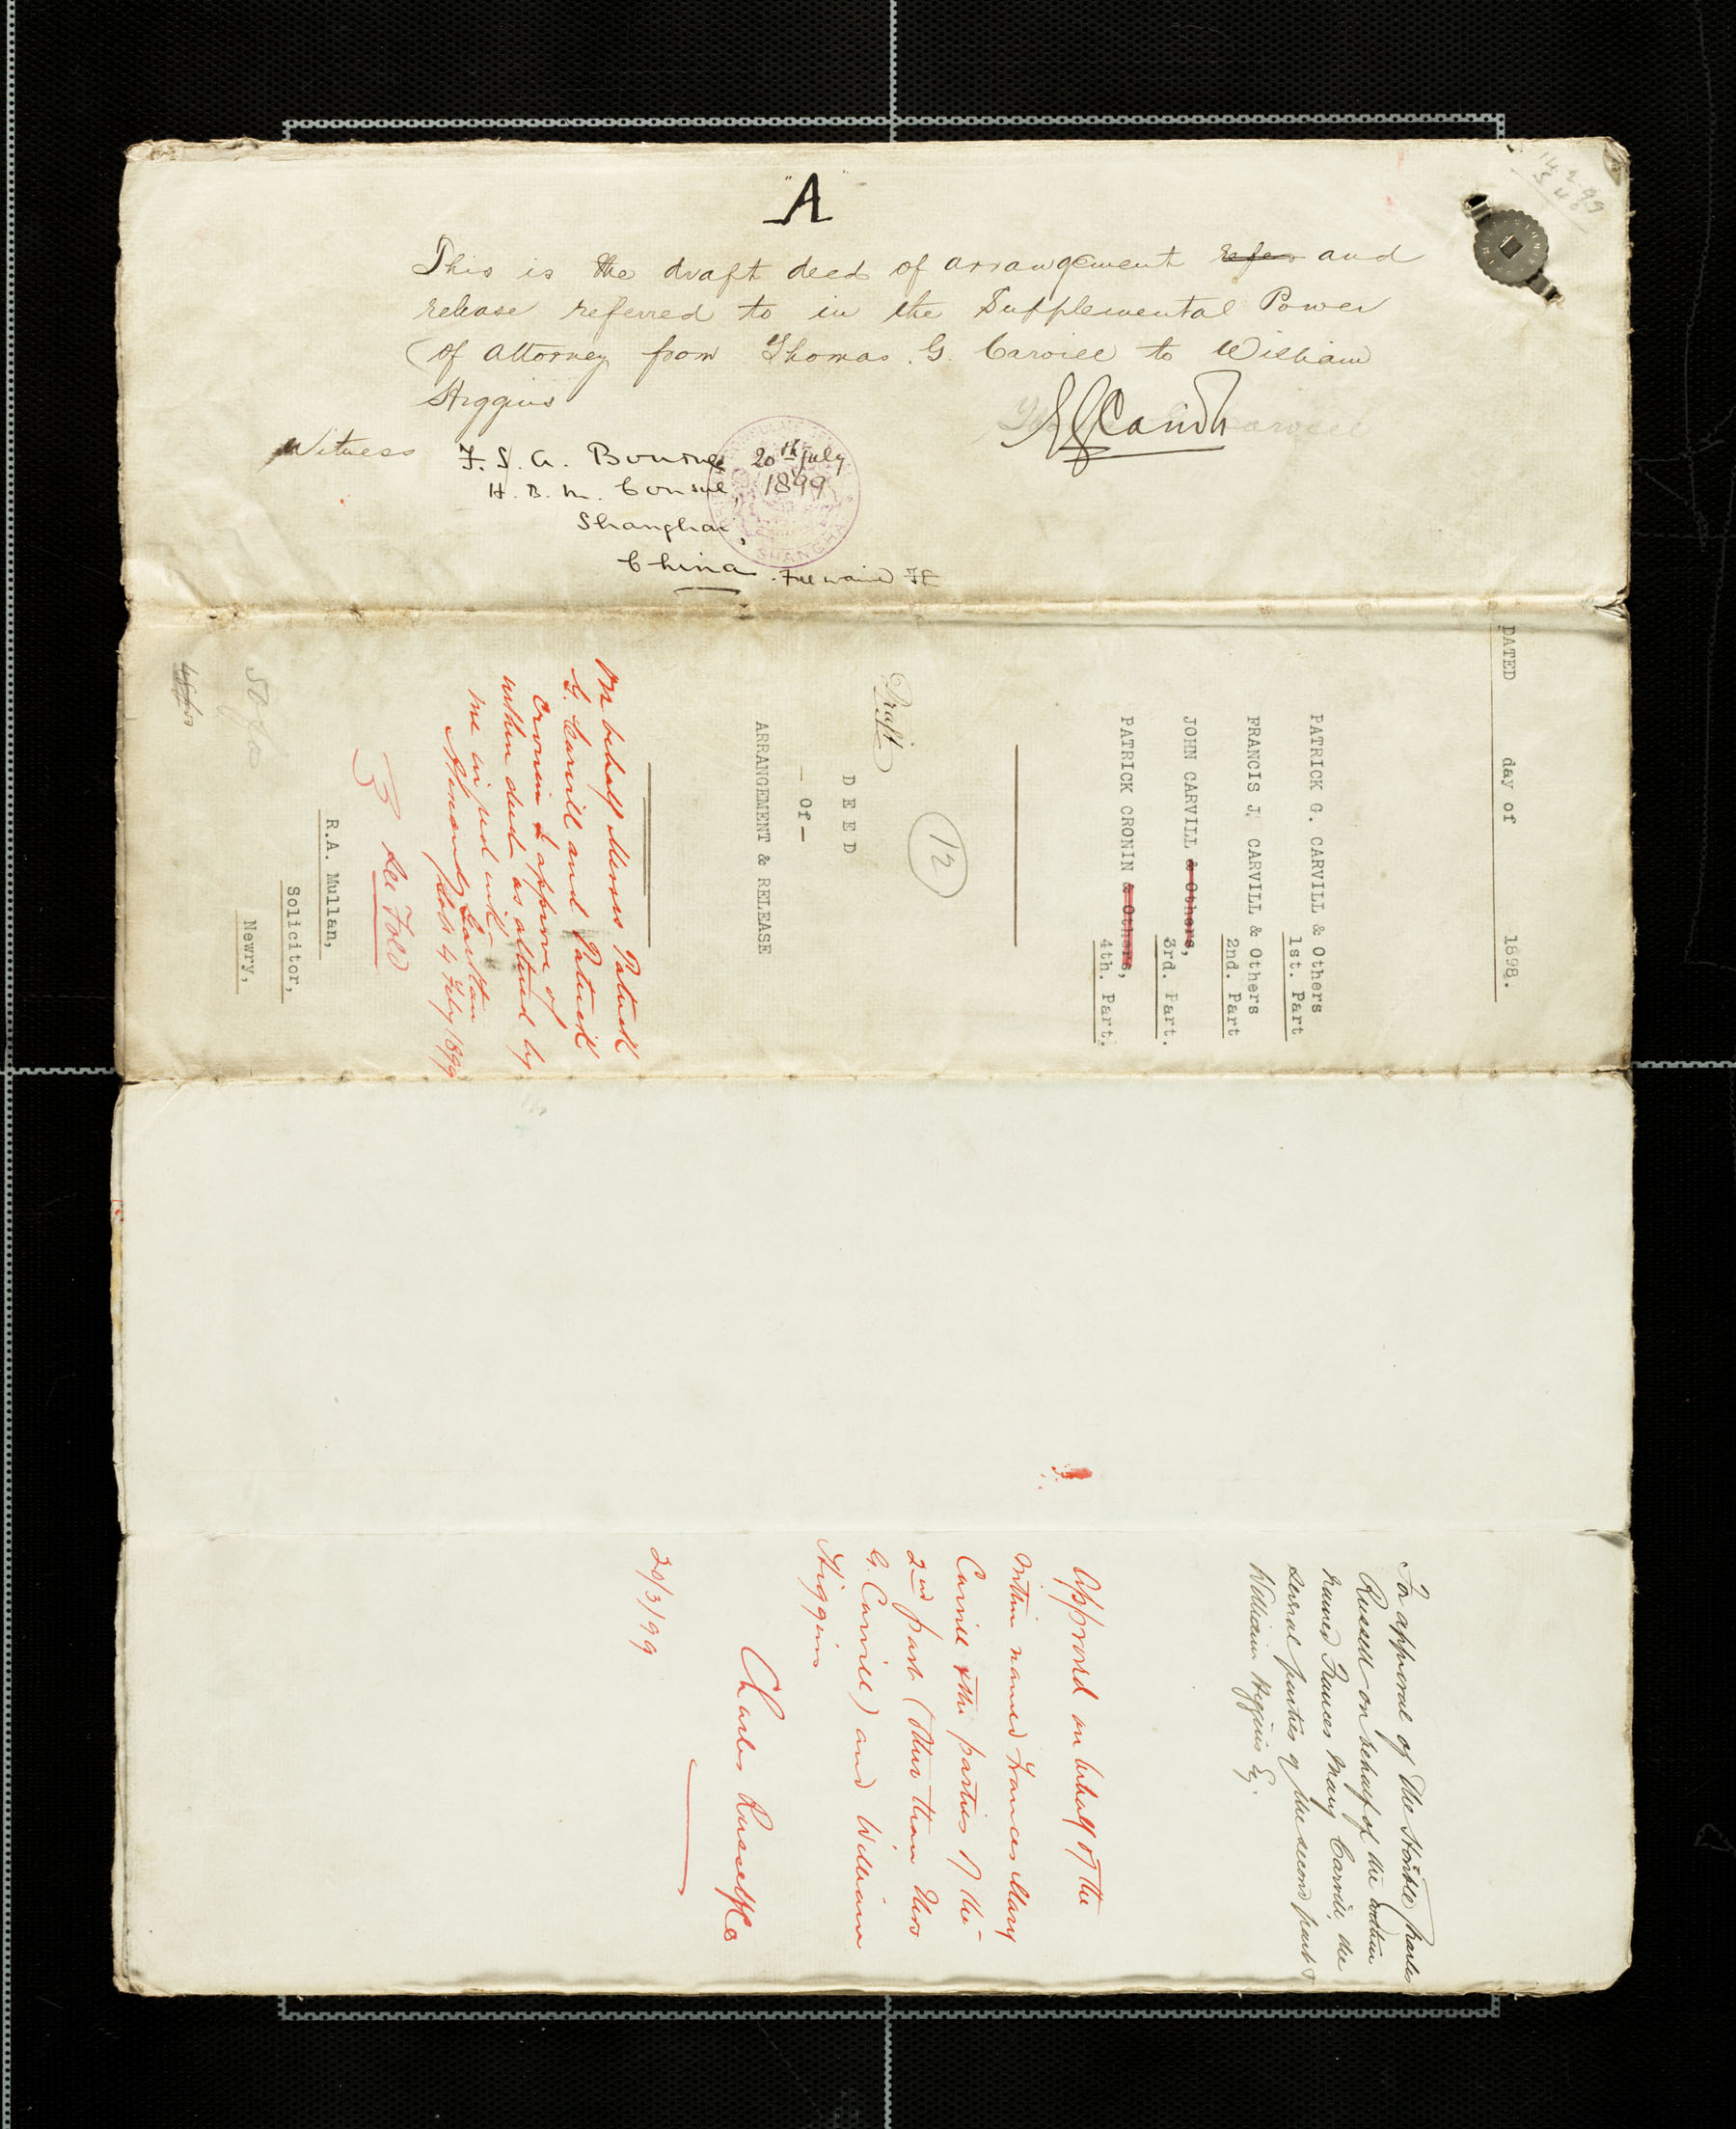 "A"
This is the draft deed of arrangement refer and
release referred to in the Supplemental Power
of Attorney from Thomas G. Carvill to William
Higgins
Witness
F. S. A. Bourne 20th July
H. B. M. Consul, 1899
Shanghai,
China.
SHANGHAI
DATED day of 1898.
PATRICK G. CARVILL & Others
1st. Part
FRANCIS J. CARVILL & Others
2nd. Part
JOHN CARVILL & Others,
3rd. Part.
PATRICK CRONIN & Others,
4th. Part.
12
Draft
DEED
- Of -
ARRANGEMENT & RELEASE
On behalf Messrs Patrick
G. Carvill and Patrick
Cronin I approve of
within deed as altered by
me in red ink
4 Feby 1899
See Fold
R.A. Mullan,
Solicitor,
Newry,
For approval of the
Russell on behalf of the within
named Frances Mary Carvill, the
several parties of the second part &
William Higgins Esq.
Approved on behalf of the
within named Frances Mary
Carvill & the parties of the
2nd part (other than Thos
G. Carvill) and William
Higgins
Charles Russell & Co
20/3/99